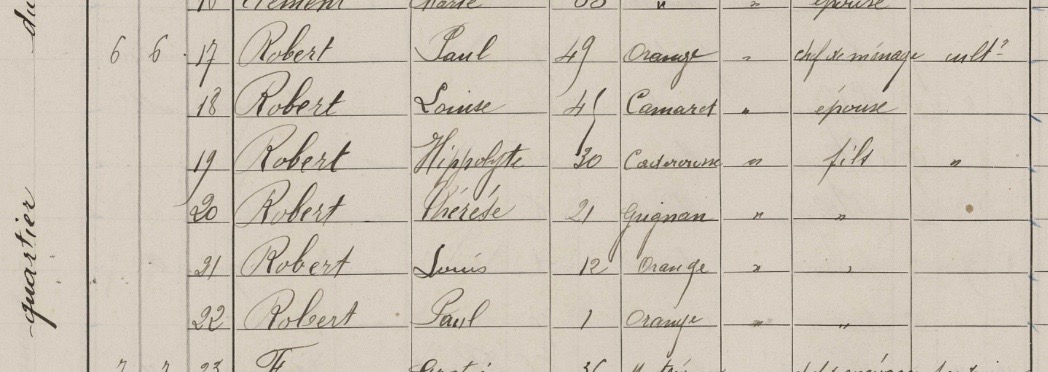 du
Clément Marie " " épouse
6 6 17 Robert Paul 49 Orange " chef de ménage cult?
18 Robert Louise 45 Camaret " épouse
19 Robert Hippolyte 30 Caderousse " fils "
20 Robert Thérèse 21 Grignan " "
21 Robert Louis 12 Orange " "
22 Robert Paul 1 Orange " "
quartier
7 7 23